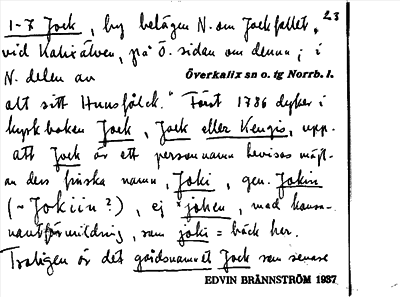 2.3
1-7 Jock, by belägen N. om Jockfallet,
vid Kalixälven, på Ö. sidan om denna; i
N. delen av Överkalix sn o. tg Norrb. l.
att sitt Hunsfålck." Först 1786 dyker i
kyrkboken Jock, Jock eller Kengis, upp.
Att Jock är ett personnamn bevisas
av dess finska namn, Joki, gen. Jokin
(~ Jokiin?), ej *johen, med konso-
nantförmildring, som joki = bäck her.
Troligen är det gårdsnamnet Jock som senare
EDVIN BRÄNNSTRÖM 1937